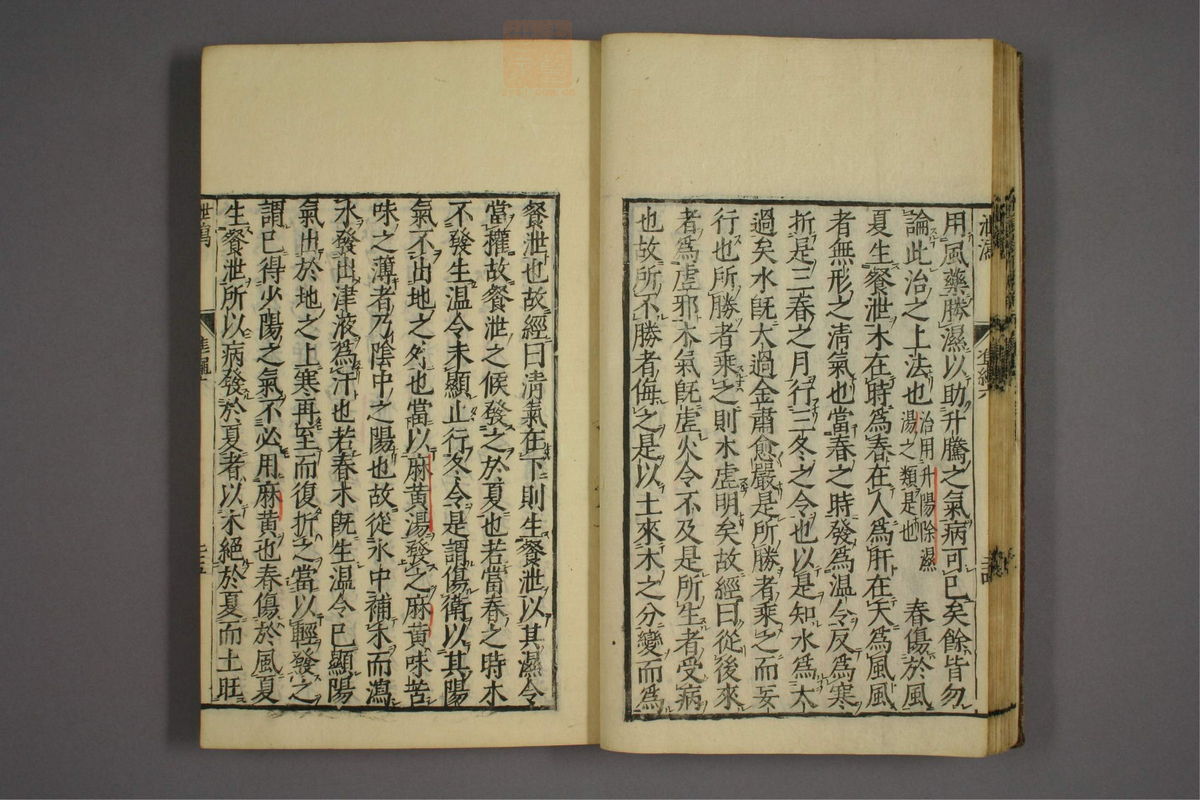 用風藥勝濕以助升騰之氣病可已矣餘皆勿
論此治之上法也治用升陽除濕湯之類是也 春傷於風
夏生飱泄木在時爲春在人爲肝在天爲風風
者無形之清氣也當春之時發爲温令反爲寒
折是三春之月行三冬之令也以是知水爲太
過矣水旣大過金肅愈嚴是所勝者乘之而妄
行也所勝者乘之則木虚明矣故經曰從後來
者爲虚邪木氣旣虚火令不及是所生者受病
也故所不勝者侮之是以土來木之分變而爲
飱泄也故經曰清氣在下則生飱泄以其濕令
當權故飱泄之候發之於夏也若當春之時木
不發生温令未顯止行冬令是謂傷衛以其陽
氣不出地之外也當以麻黄湯發之麻黄味苦
味之薄者乃陰中之陽也故從水中補木而瀉
水發出津液爲汗也若春木旣生温令已顯陽
氣出於地之上寒再至而復折之當以輕發之
謂已得少陽之氣不必用麻黄也春傷於風夏
生飱泄所以病發於夏者以木絕於夏而土旺